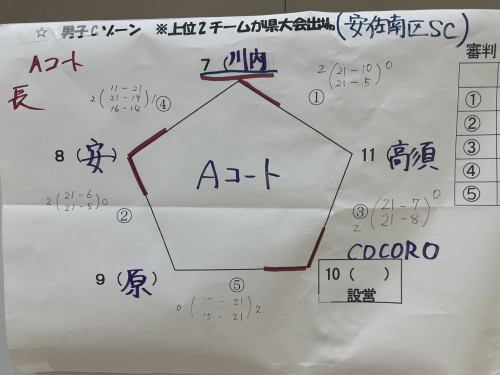 ☆ 男子Cゾーン ※上位2チームが県大会出場(安佐南区SC)
Aコート
長
審判
7 (川内)
2 (21-10) 0
(21-5)
①
2 (11-21) 1
21-14
16-14
④
8 (安)
11 (高須)
Aコート
①
②
③
④
⑤
2 (21-6) 0
21-5
②
③ (21-7) 0
2 21-8
COCORO
9 (原)
10 ( )
設営
⑤
0 (17-21) 2
15-21